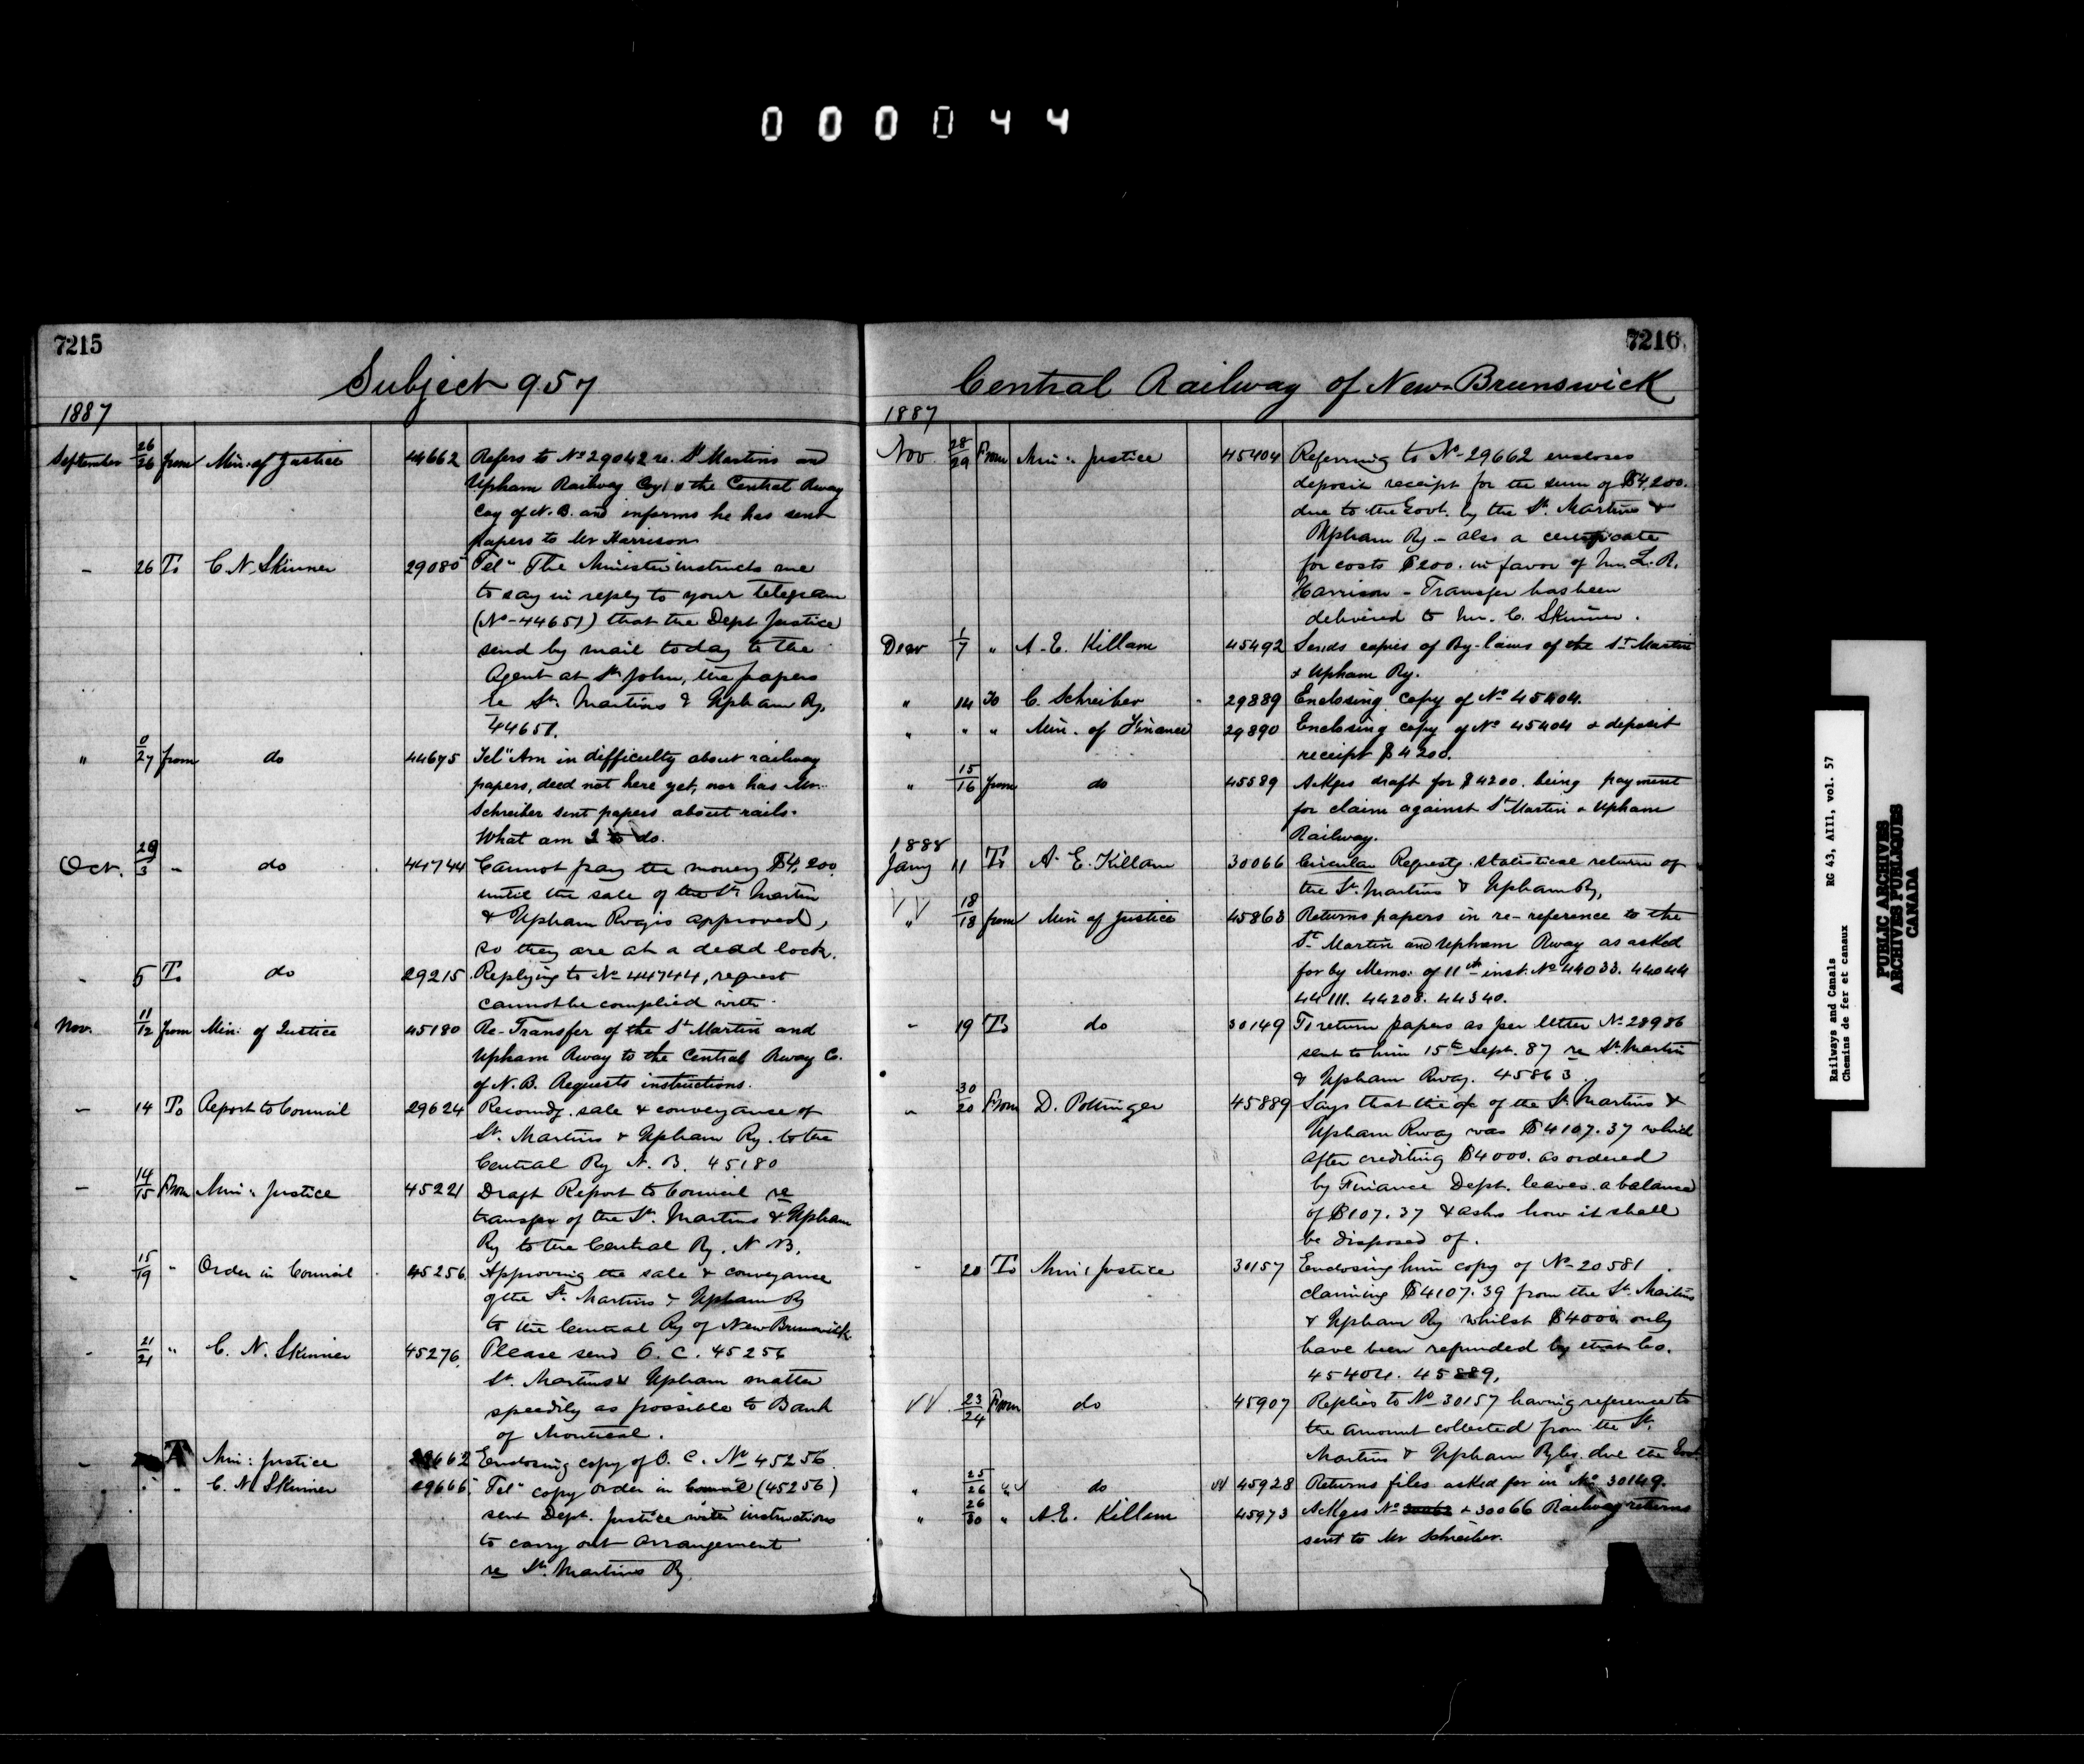 000044
7215
Subject 957
1887
September 26/26 from Min. of Justice 44662 Refers to No 29042 re. St Martins and
Upham Railway Coy & the Central Rway
Coy of N.B. and informs he has sent
papers to Mr Harrison
- 26 To C. N. Skinner 29085 Tel" The Minister instructs me
to say in reply to your telegram
(No-44651) that the Dept Justice
send by mail today to the
Agent at St John, the papers
re St. Martins & Upham Ry.
44651.
" 0/27 from do 44675 Tel" Am in difficulty about railway
papers, deed not here yet, nor has Mr.
Schreiber sent papers about rails.
What am I to do.
Oct. 29/3 - do 44744 Cannot pay the money $4,200.
until the sale of the St. Martin
& Upham Rwy is approved,
so they are at a dead lock.
- 5 To do 29215 Replying to No 44744, request
cannot be complied with.
Nov. 11/12 from Min. of Justice 45180 Re-Transfer of the St Martin and
Upham Rway to the Central Rway Co.
of N.B. Requests instructions.
- 14 To Report to Council 29624 Recomdg. sale & conveyance of
St. Martins & Upham Ry. to the
Central Ry N.B. 45180
- 14/15 From Min: Justice 45221 Draft Report to Council re
transfer of the St. Martins & Upham
Ry to the Central Ry. N.B.
- 15/19 " Order in Council 45256. Approving the sale & conveyance
of the St. Martins & Upham Ry
to the Central Ry of New Brunswick
- 21/21 " C. N. Skinner 45276. Please send O.C. 45256
St. Martins & Upham matter
speedily as possible to Bank
of Montreal.
- T Min: Justice 29662 Enclosing copy of O.C. No 45256.
" - C. N. Skinner 29666. Tel" copy order in Council (45256)
sent Dept. Justice with instructions
to carry out arrangement
re St. Martins Ry.
7216
Central Railway of New Brunswick
1887
Nov 28/29 From Min: Justice 45404 Referring to No-29662 encloses
deposit receipt for the sum of $4,200.
due to the Govt. by the St. Martins &
Upham Ry - also a certificate
for costs $200. in favor of Mr. L. R.
Harrison - Transfer has been
delivered to Mr. C. Skinner.
Decr 1/7 " A. E. Killam 45492 Sends copies of By-laws of the St Martin
& Upham Ry.
" 14 To C. Schreiber 29889 Enclosing copy of No 45404.
" " " Min. of Finance 29890 Enclosing copy of No 45404 & deposit
receipt $4200.
" 15/16 from do 45589 Ackges draft for $4200. being payment
for claim against St Martin & Upham
Railway.
1888
Jany 11 To A. E. Killam 30066 Circular Requestg. statistical return of
the St. Martins & Upham Ry,
" 18/18 from Min of Justice 45863 Returns papers in re-reference to the
St Martin and Upham Rway as asked
for by Memo: of 11th inst. No 44033. 44044
44111. 44208. 44340.
- 19 To do 30149 To return papers as per letter No 28986
sent to him 15th Sept. 87 re St. Martin
& Upham Rway. 45863.
" 30/20 From D. Pottinger 45889 Says that the a/c of the St. Martins &
Upham Rway was $4107.37 which
after crediting $4000. as ordered
by Finance Dept. leaves a balance
of $107.37 & asks how it shall
be disposed of.
- 20 To Min: Justice 30157 Enclosing him copy of No-20581
claiming $4107.39 from the St. Martins
& Upham Ry whilst $4000 only
have been refunded by that Co.
45404. 45889,
VV 23/24 From do 45907 Replies to No 30157 having reference to
the amount collected from the St.
Martins & Upham Ry Co. due the Govt.
" 25/26 " do VV 45928 Returns files asked for in No 30149.
" 26/30 " A. E. Killam 45973 Ackges No 30062 & 30066 Railway returns
sent to Mr Schreiber.
Railways and Canals RG 43, AIII, vol. 57
Chemins de fer et canaux
PUBLIC ARCHIVES
ARCHIVES PUBLIQUES
CANADA